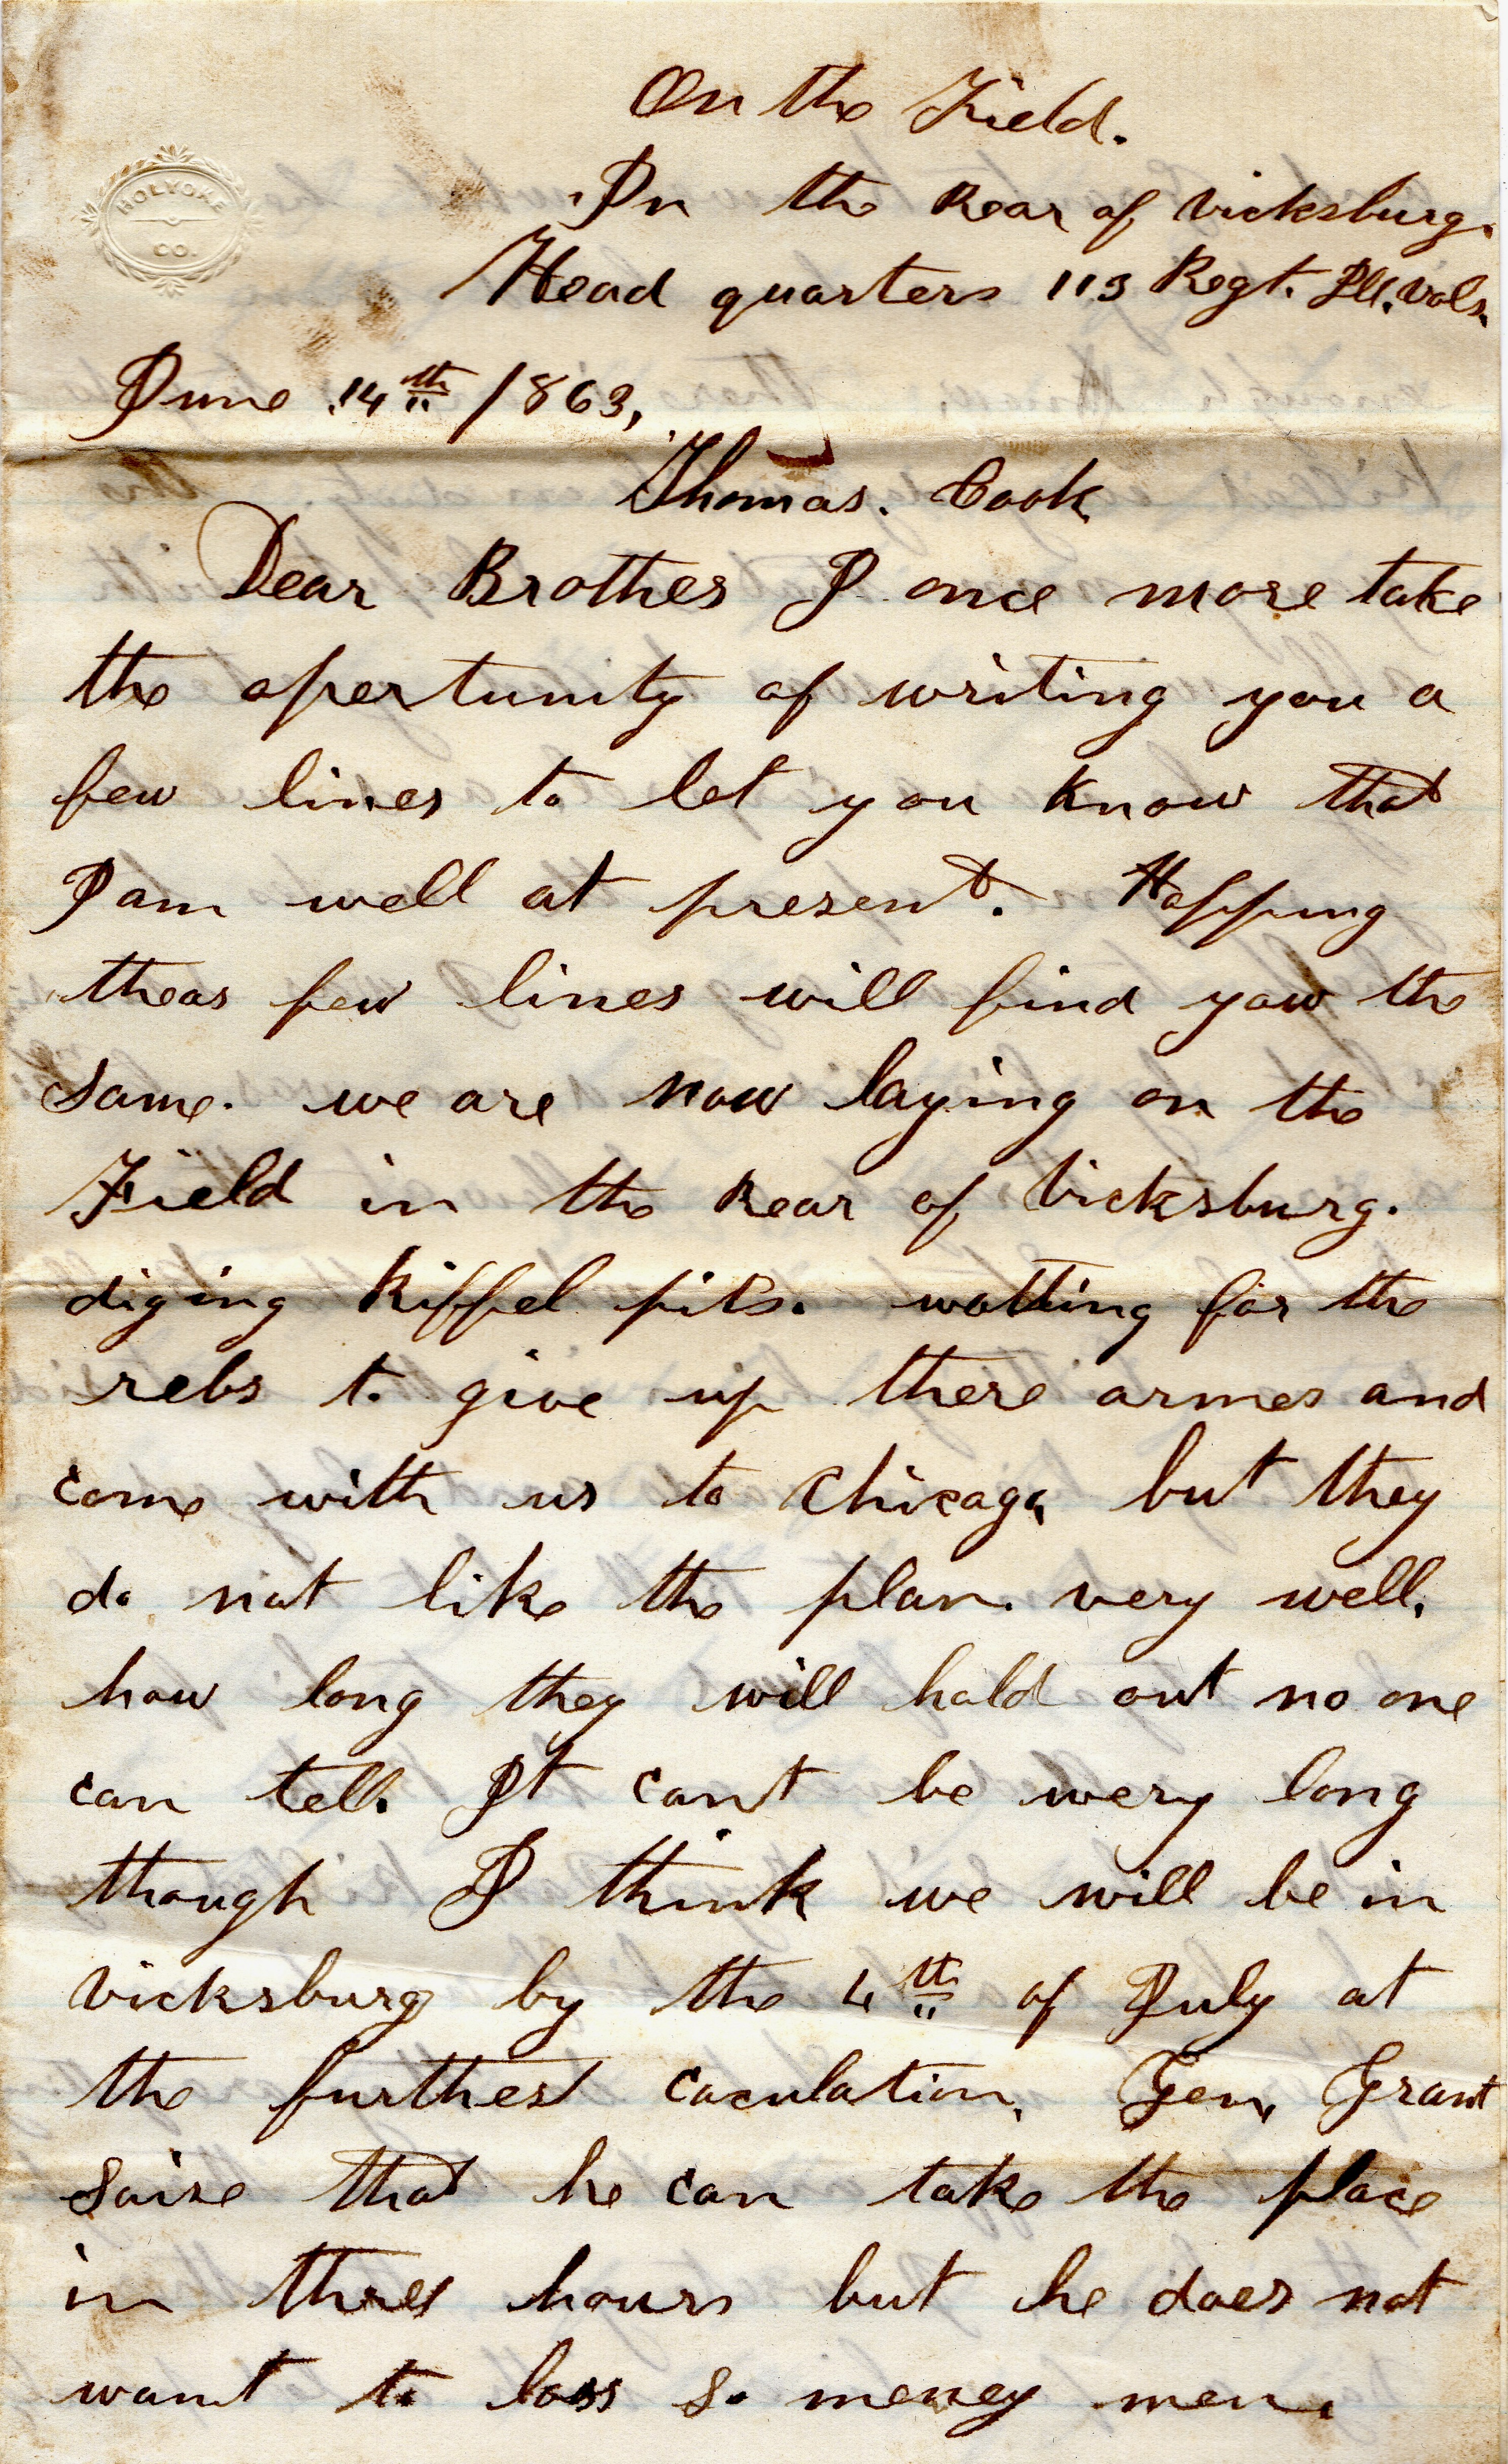 HOLYOKE
CO.
On the Field.
In the Rear of Vicksburg.
Head quarters 113 Regt. Ill. Vols.
June 14th 1863,
Thomas. Cook
Dear Brother I once more take
the opertunity of writing you a
few lines to let you know that
I am well at present. Hopping
theas few lines will find yaw the
same. we are now laying on the
Field in the Rear of Vicksburg.
diging Riffel pits. watting for the
rebs to give up there armes and
come with us to Chicago, but they
do not like the plan. very well.
how long they will hold out no one
can tell. It cant be wery long
though I think we will be in
Vicksburg by the 4th of July at
the furthest caculation. Gen. Grant
saise that he can take the place
in three hours but he does not
want to loss so meney men.